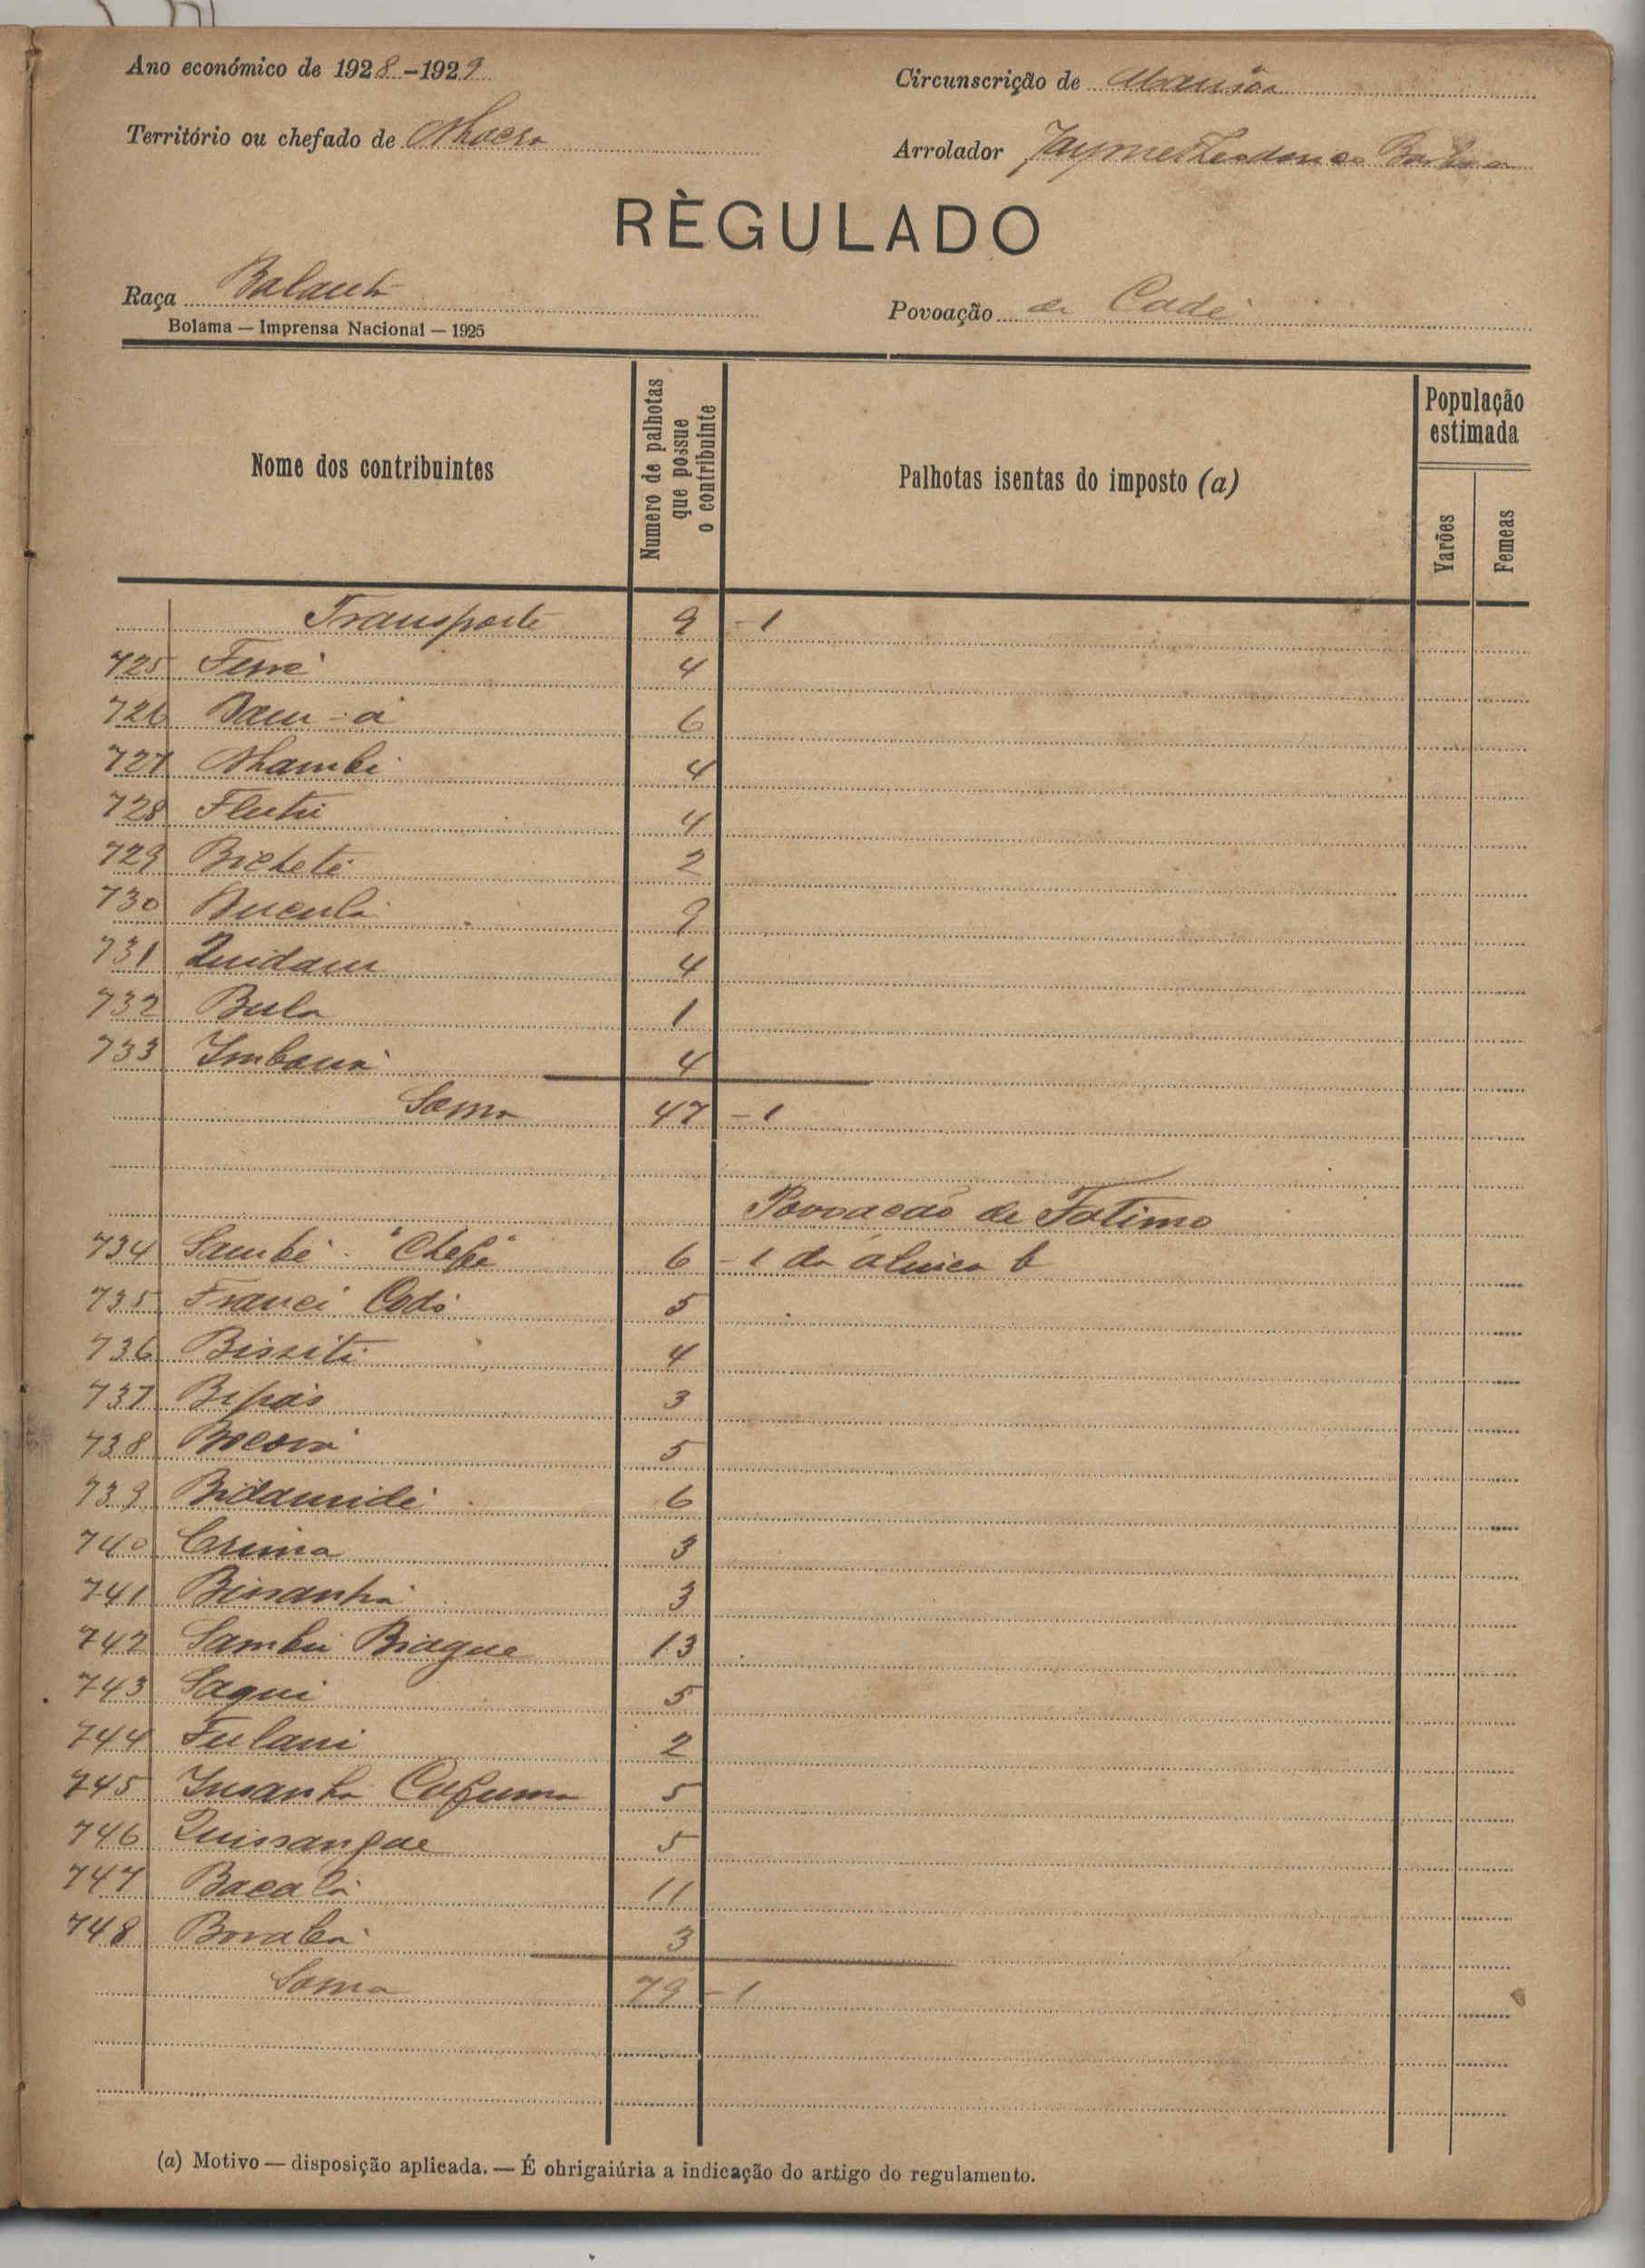 Ano económico de 1928-1929
Circunscrição de Mansôa
Território ou chefado de Nhacra
Arrolador Jayme Theodorico Barbosa
RÈGULADO
Raça Balanta
Povoação de Cadé
Bolama — Imprensa Nacional — 1925
Nome dos contribuintes
Numero de palhotas que possue o contribuinte
Palhotas isentas do imposto (a)
População estimada
Varões
Femeas
Transporte 9 - 1
725 4
726 6
727 Nhambi 4
728 4
729 Bichete 2
730 Bucula 9
731 Quidam 4
732 Bula 1
733 4
Soma 47 - 1
Povoação de Fatimo
734 Sambé "Chefe" 6 - 1 da alinea b
735 5
736 Bissiti 4
737 Bipás 3
738 5
739 6
740 3
741 Bissanhá 3
742 Sambu Biague 13
743 Saqui 5
744 Fulani 2
745 Insanha Cufuma 5
746 Quissangue 5
747 Bacalá 11
748 3
Soma 79 - 1
(a) Motivo — disposição aplicada. — É obrigaiúria a indicação do artigo do regulamento.